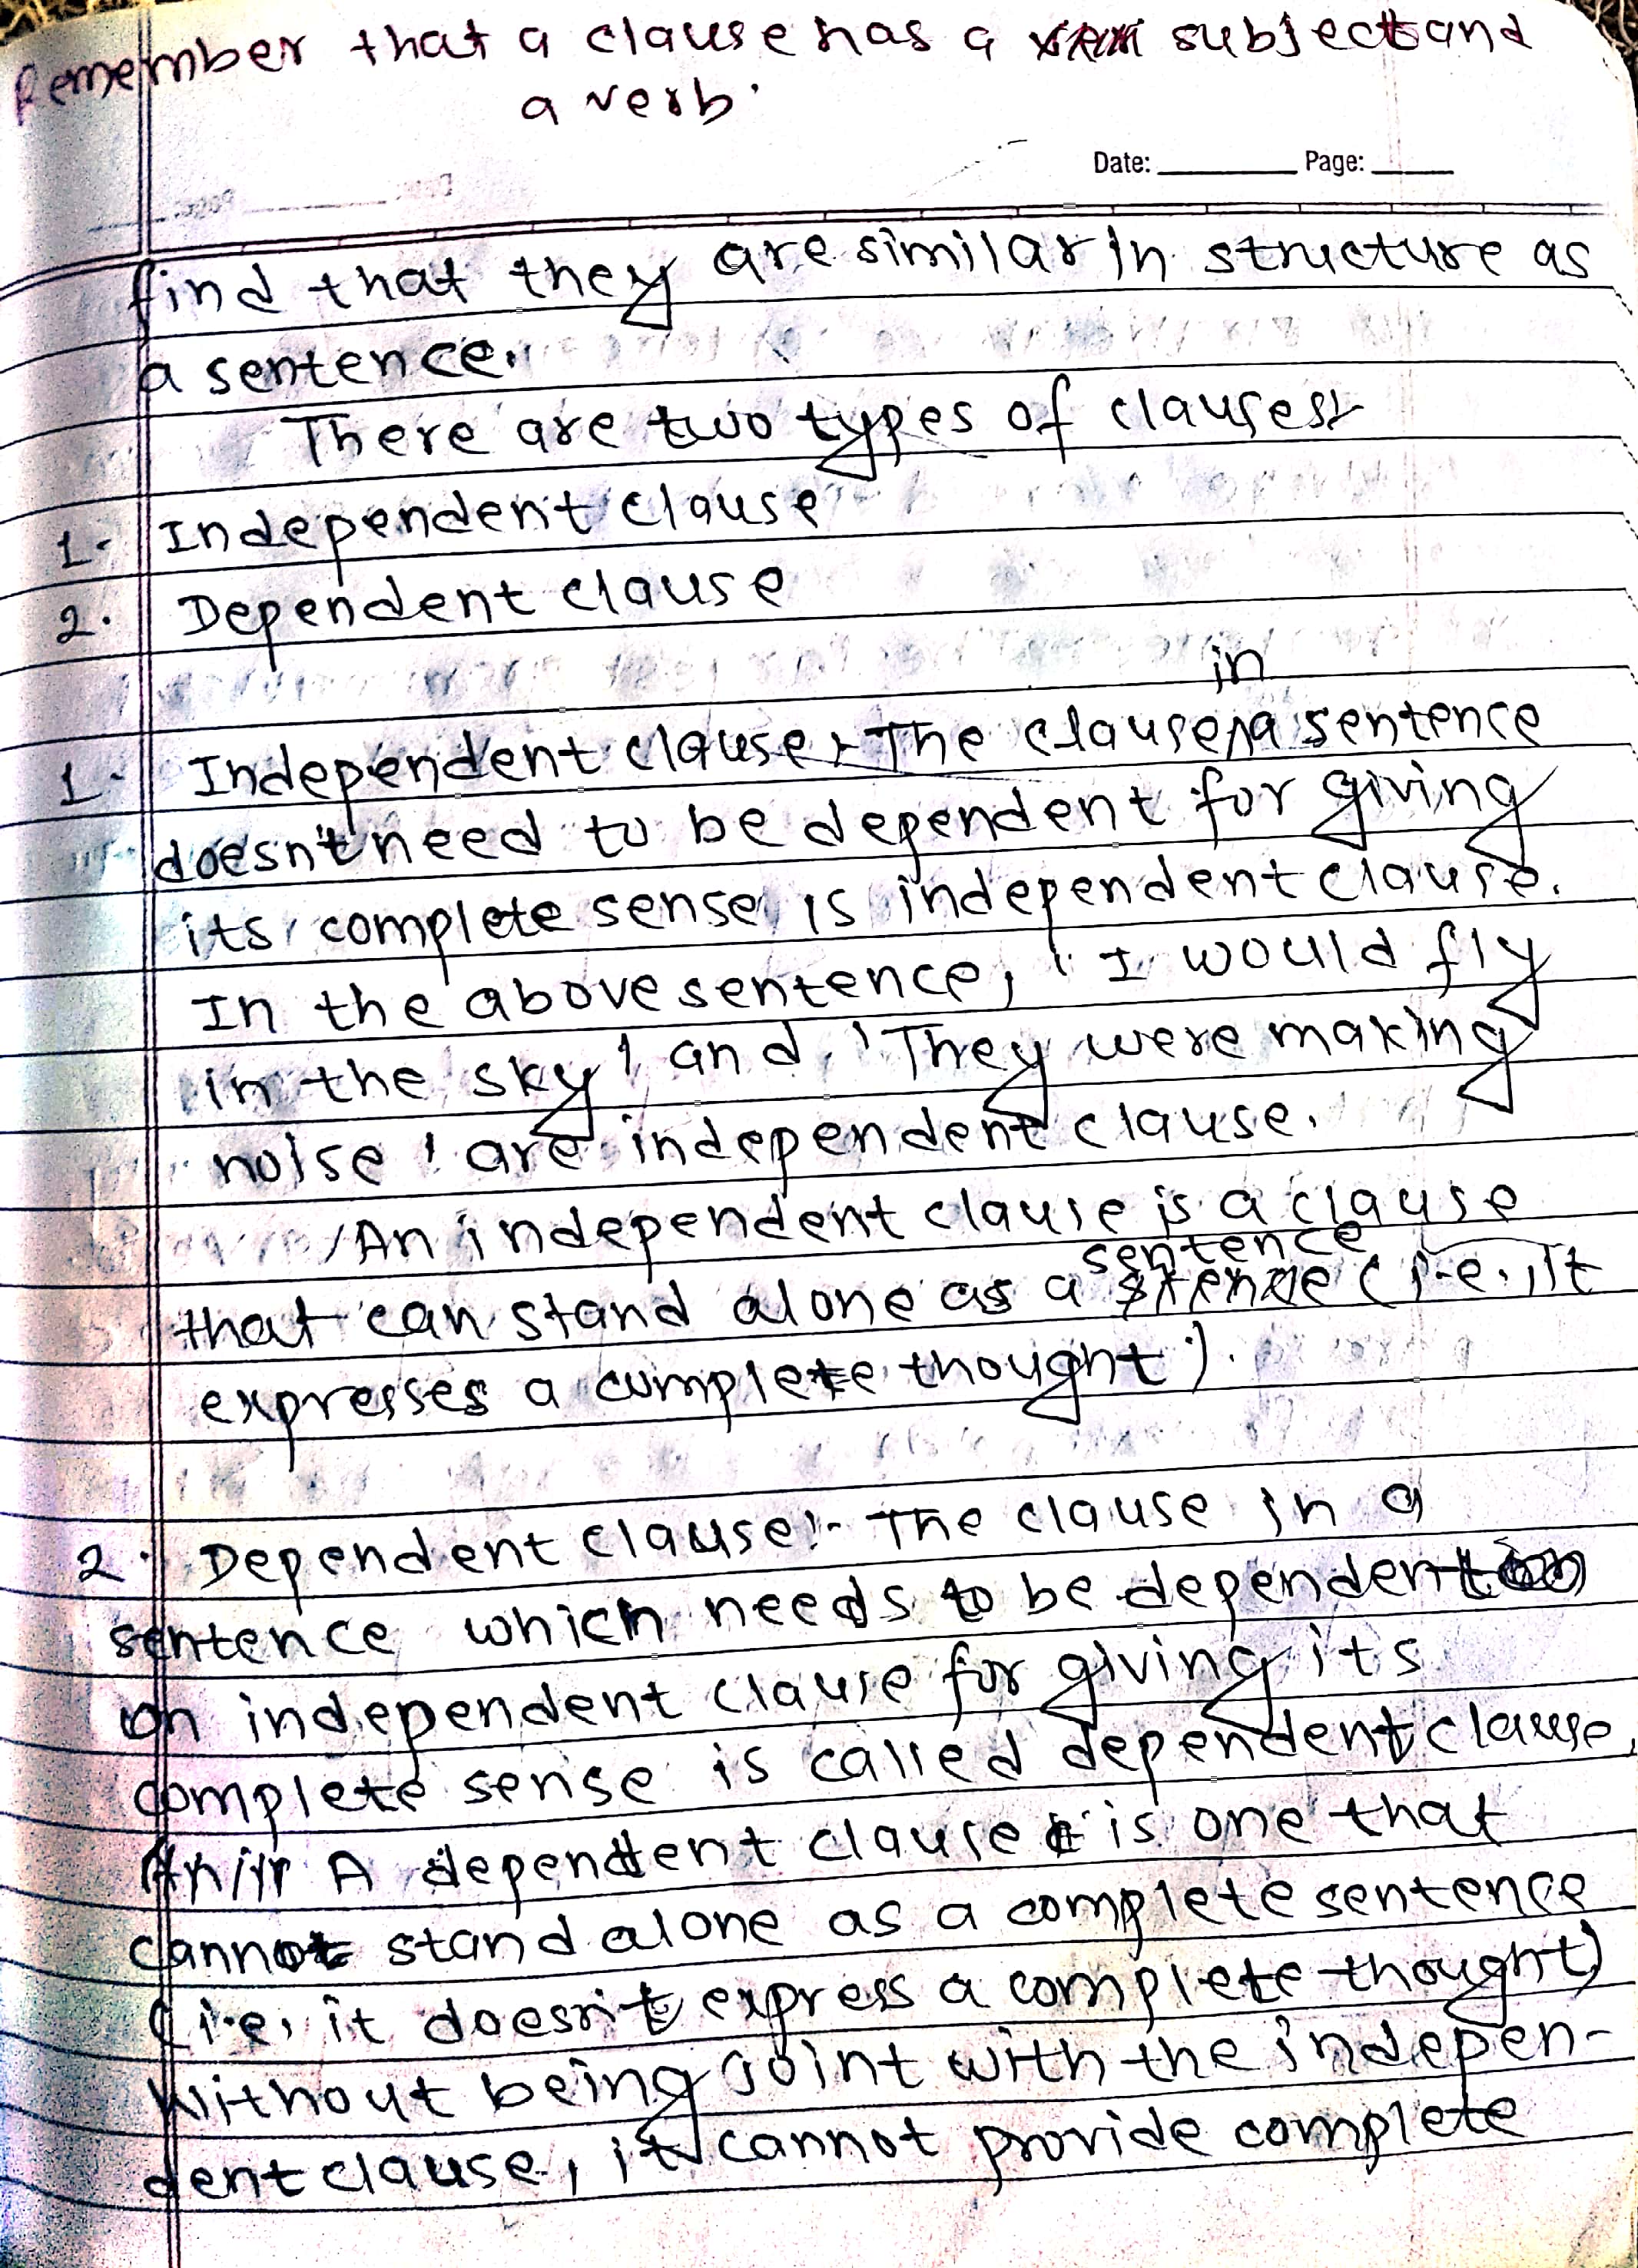 Remember that a clause has a subject and
a verb.
Date: Page:
find that they are similar in structure as
a sentence.
There are two types of clauses:-
1. Independent clause
2. Dependent clause
in
1. Independent clause :- The clause a sentence
doesn't need to be dependent for giving
its complete sense is independent clause.
In the above sentence, 'I would fly
in the sky' and 'They were making
noise' are independent clause.
An independent clause is a clause
sentence
that can stand alone as a (i.e., it
expresses a complete thought).
2. Dependent clause:- The clause in a
sentence which needs to be dependent
on independent clause for giving its
complete sense is called dependent clause.
A dependent clause is one that
cannot stand alone as a complete sentence
(i.e., it doesn't express a complete thought)
Without being joint with the indepen-
dent clause, it cannot provide complete